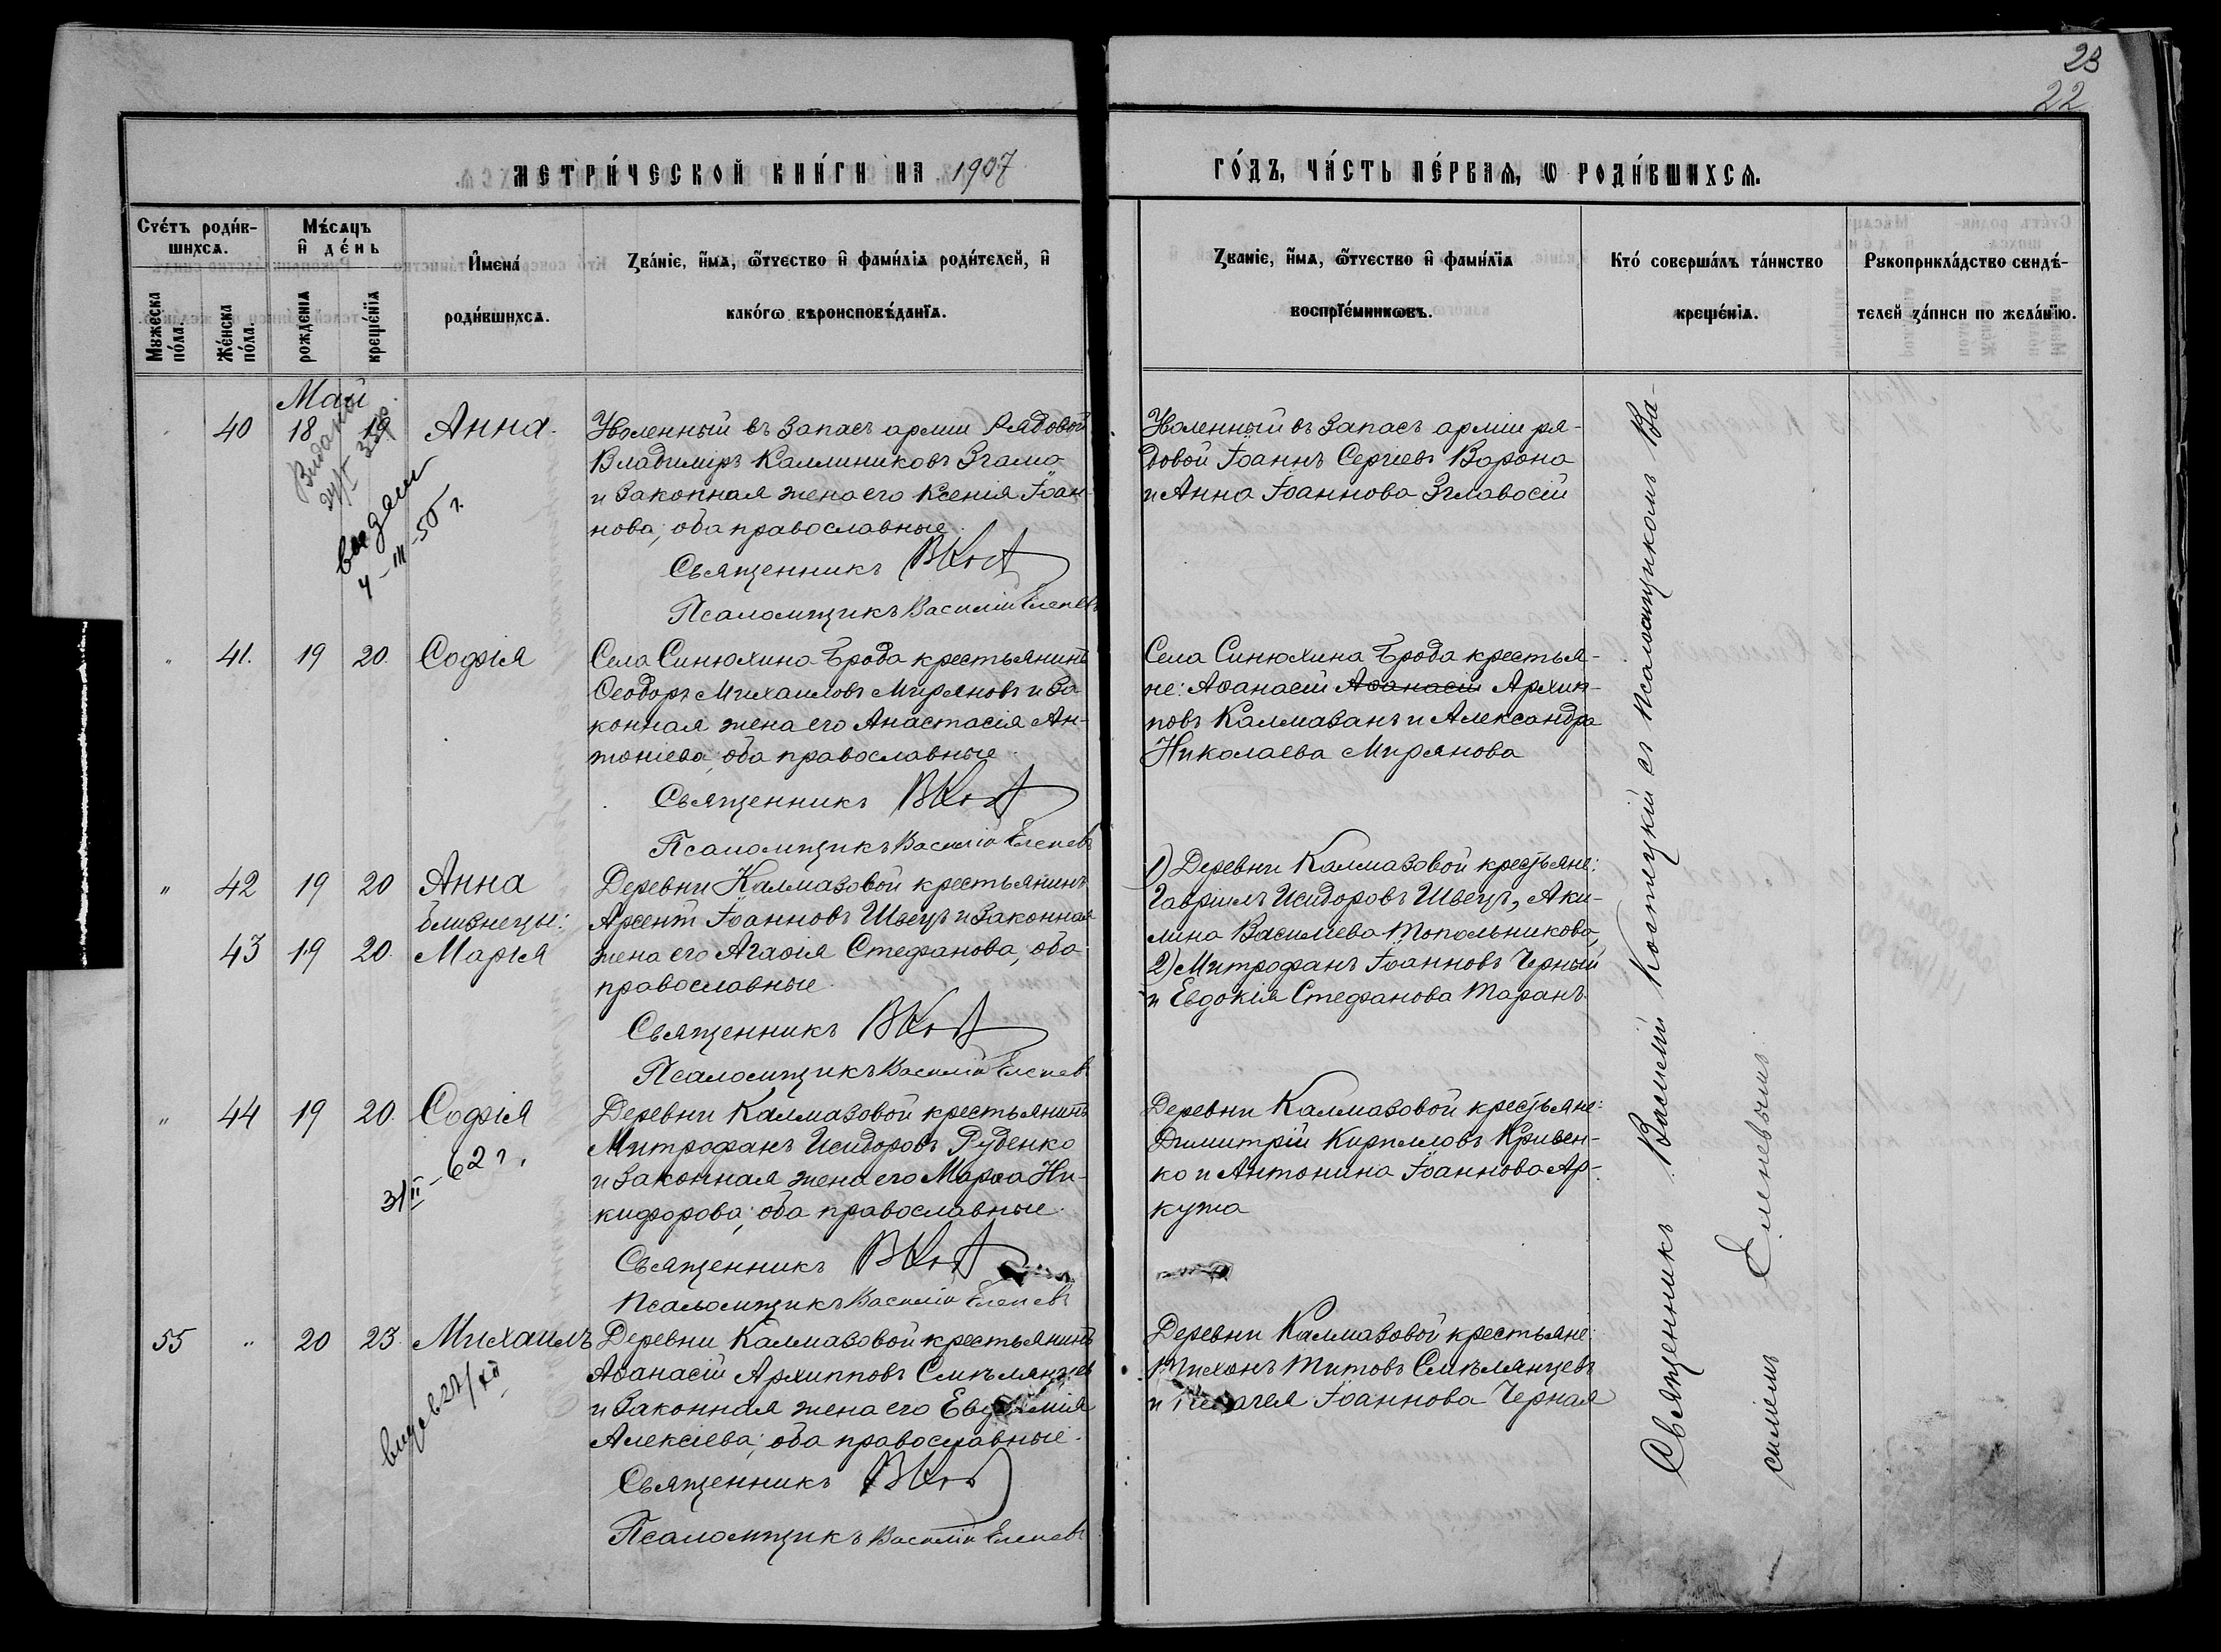 23
22
МЕТРИ́ЧЕСКОЙ КНИ́ГИ НА 1907
ГО́ДЪ, ЧА́СТЬ ПЕ́РВАѦ, Ѡ РОДИ́ВШИХСѦ.
Сче́тъ роди́в-
шихсѧ.
Мужеска
по́ла.
Же́нска
по́ла.
Мѣ́сѧцъ
и҆ де́нь
рожденіѧ
креще́нїѧ
И҆мена́
роди́вшихсѧ.
Зва́нїе, и҆́мѧ, ѻ҆́тчество и҆ фами́лїѧ роди́телей, и҆
како́гѡ вѣроисповѣ́данїѧ.
Званїе, и҆́мѧ, ѻ҆́тчество и҆ фами́лїѧ
воспрїе́мникѡвъ.
Кто́ соверша́лъ та́инство
креще́нїѧ.
Рукоприкла́дство свидѣ́-
телей за́писи по жела́нїю.
Май
40 18 19 Анна.
Уволенный въ запасъ арміи рядовой
Владиміръ Каллиниковъ Згама
и законная жена его Ксенія Іоан-
нова, оба православные.
Священникъ
Псаломщикъ Василій Еленевъ
4-III-50 г.
Уволенный въ запасъ арміи ря-
довой Іоаннъ Сергіевъ Ворона
и Анна Іоаннова
" 41. 19 20. Софія
Села Синюхина Брода крестьянинъ
Ѳеодоръ Михаиловъ Миряновъ и за-
конная жена его Анастасія Ан-
тоніева, оба православные.
Священникъ
Псаломщикъ Василій Еленевъ
Села Синюхина Брода крестья-
не: Аѳанасій Аѳанасій Архип-
повъ Калмазанъ и Александра
Николаева Мирянова
" 42 19 20 Анна
близнецы:
43 19 20. Марія
Деревни Калмазовой крестьянинъ
Арсентій Іоанновъ Швецъ и законная
жена его Агаѳія Стефанова, оба
православные.
Священникъ
Псаломщикъ Василій Еленевъ
1) Деревни Калмазовой крестьяне:
Гавріилъ Исидоровъ Швецъ, Аки-
лина Василіева Топольникова,
2) Митрофанъ Іоанновъ Черный
и Евдокія Стефанова Таранъ.
" 44 19 20. Софія
62 г.
Деревни Калмазовой крестьянинъ
Митрофанъ Исидоровъ Руденко
и законная жена его Марѳа Ни-
кифорова, оба православные.
Священникъ
Псаломщикъ Василій Еленевъ
Деревни Калмазовой крестьяне:
Димитрій Кирилловъ Кривен-
ко и Антонина Іоаннова Ар-
куша
55 " 20 23. Михаилъ
Деревни Калмазовой крестьянинъ
Аѳанасій Архипповъ Смѣлянцевъ
и законная жена его Евфимія
Алексіева, оба православные.
Священникъ
Псаломщикъ Василій Еленевъ
Деревни Калмазовой крестьяне:
Тихонъ Титовъ Смѣлянцевъ
и Іоаннова Черная
Священникъ Василій Костецкій съ псаломщикомъ Ва-
силіемъ Еленевымъ.